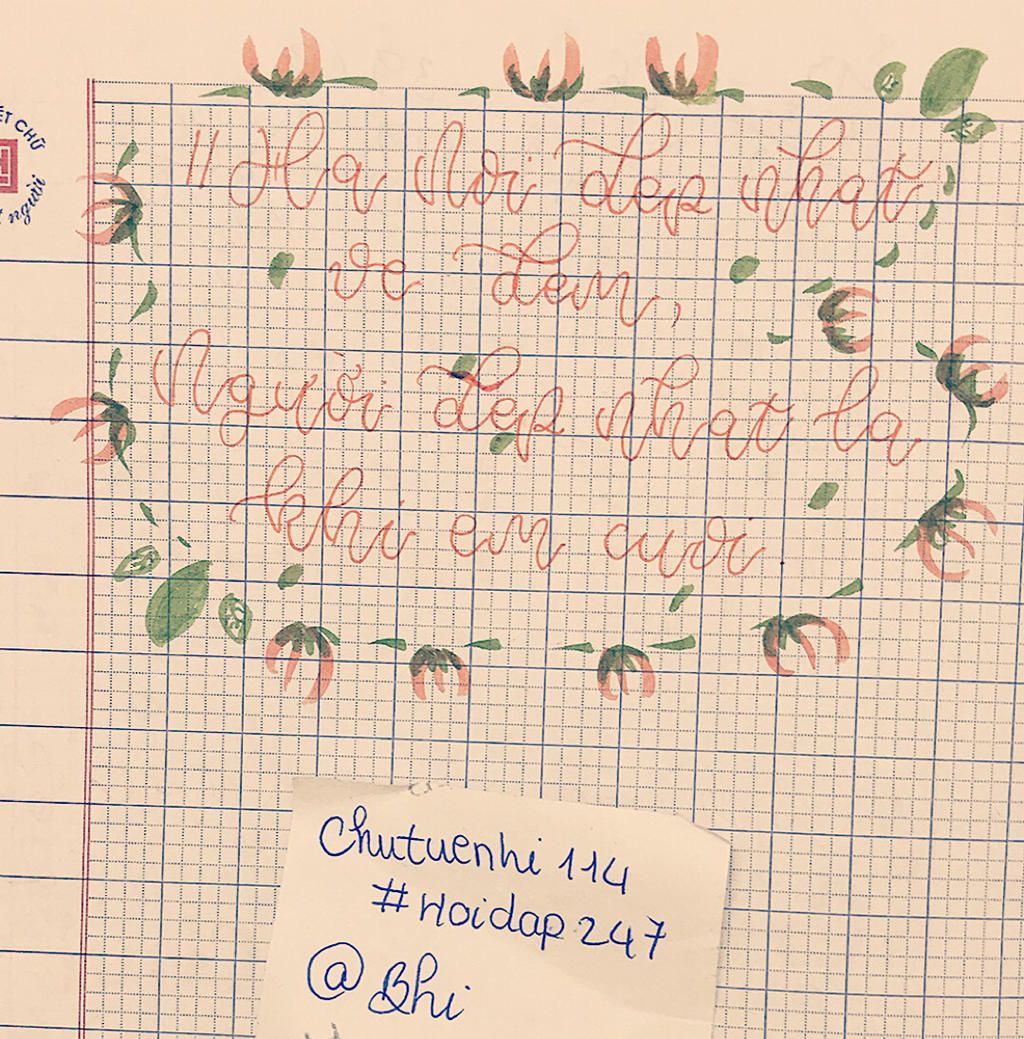 ẾT CHỮ
người
"Ha Noi dep nhat
ve dem,
Người dep nhat la
khi em cuoi
Chutuenhi 114
#Hoidap 247
@Bhi